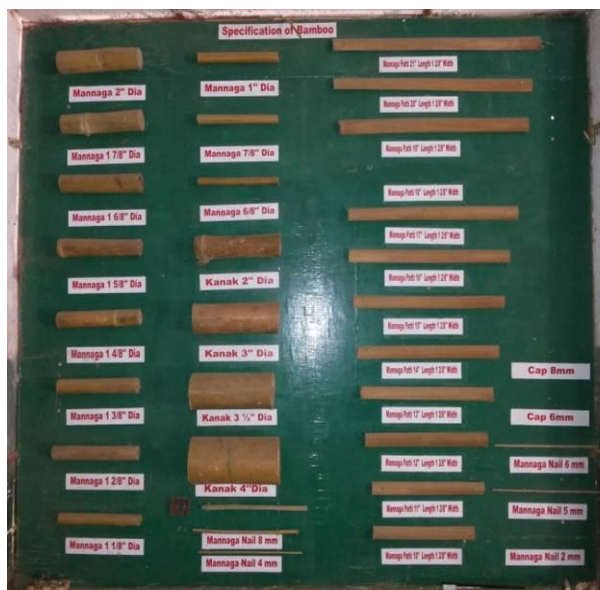 Specification of Bamboo
Mannaga 2" Dia
Mannaga 1 7/8" Dia
Mannaga 1 6/8" Dia
Mannaga 1 5/8" Dia
Mannaga 1 4/8" Dia
Mannaga 1 3/8" Dia
Mannaga 1 2/8" Dia
Mannaga 1 1/8" Dia
Mannaga 1" Dia
Mannaga 7/8" Dia
Mannaga 6/8" Dia
Kanak 2" Dia
Kanak 3" Dia
Kanak 3 ½" Dia
Kanak 4"Dia
Mannaga Nail 8 mm
Mannaga Nail 4 mm
Mannaga Patti 21" Length 1 2/8" Width
Mannaga Patti 20" Length 1 2/8" Width
Mannaga Patti 19" Length 1 2/8" Width
Mannaga Patti 18" Length 1 2/8" Width
Mannaga Patti 17" Length 1 2/8" Width
Mannaga Patti 16" Length 1 2/8" Width
Mannaga Patti 15" Length 1 2/8" Width
Mannaga Patti 14" Length 1 2/8" Width
Mannaga Patti 13" Length 1 2/8" Width
Mannaga Patti 12" Length 1 2/8" Width
Mannaga Patti 11" Length 1 2/8" Width
Mannaga Patti 10" Length 1 2/8" Width
Cap 8mm
Cap 6mm
Mannaga Nail 6 mm
Mannaga Nail 5 mm
Mannaga Nail 2 mm